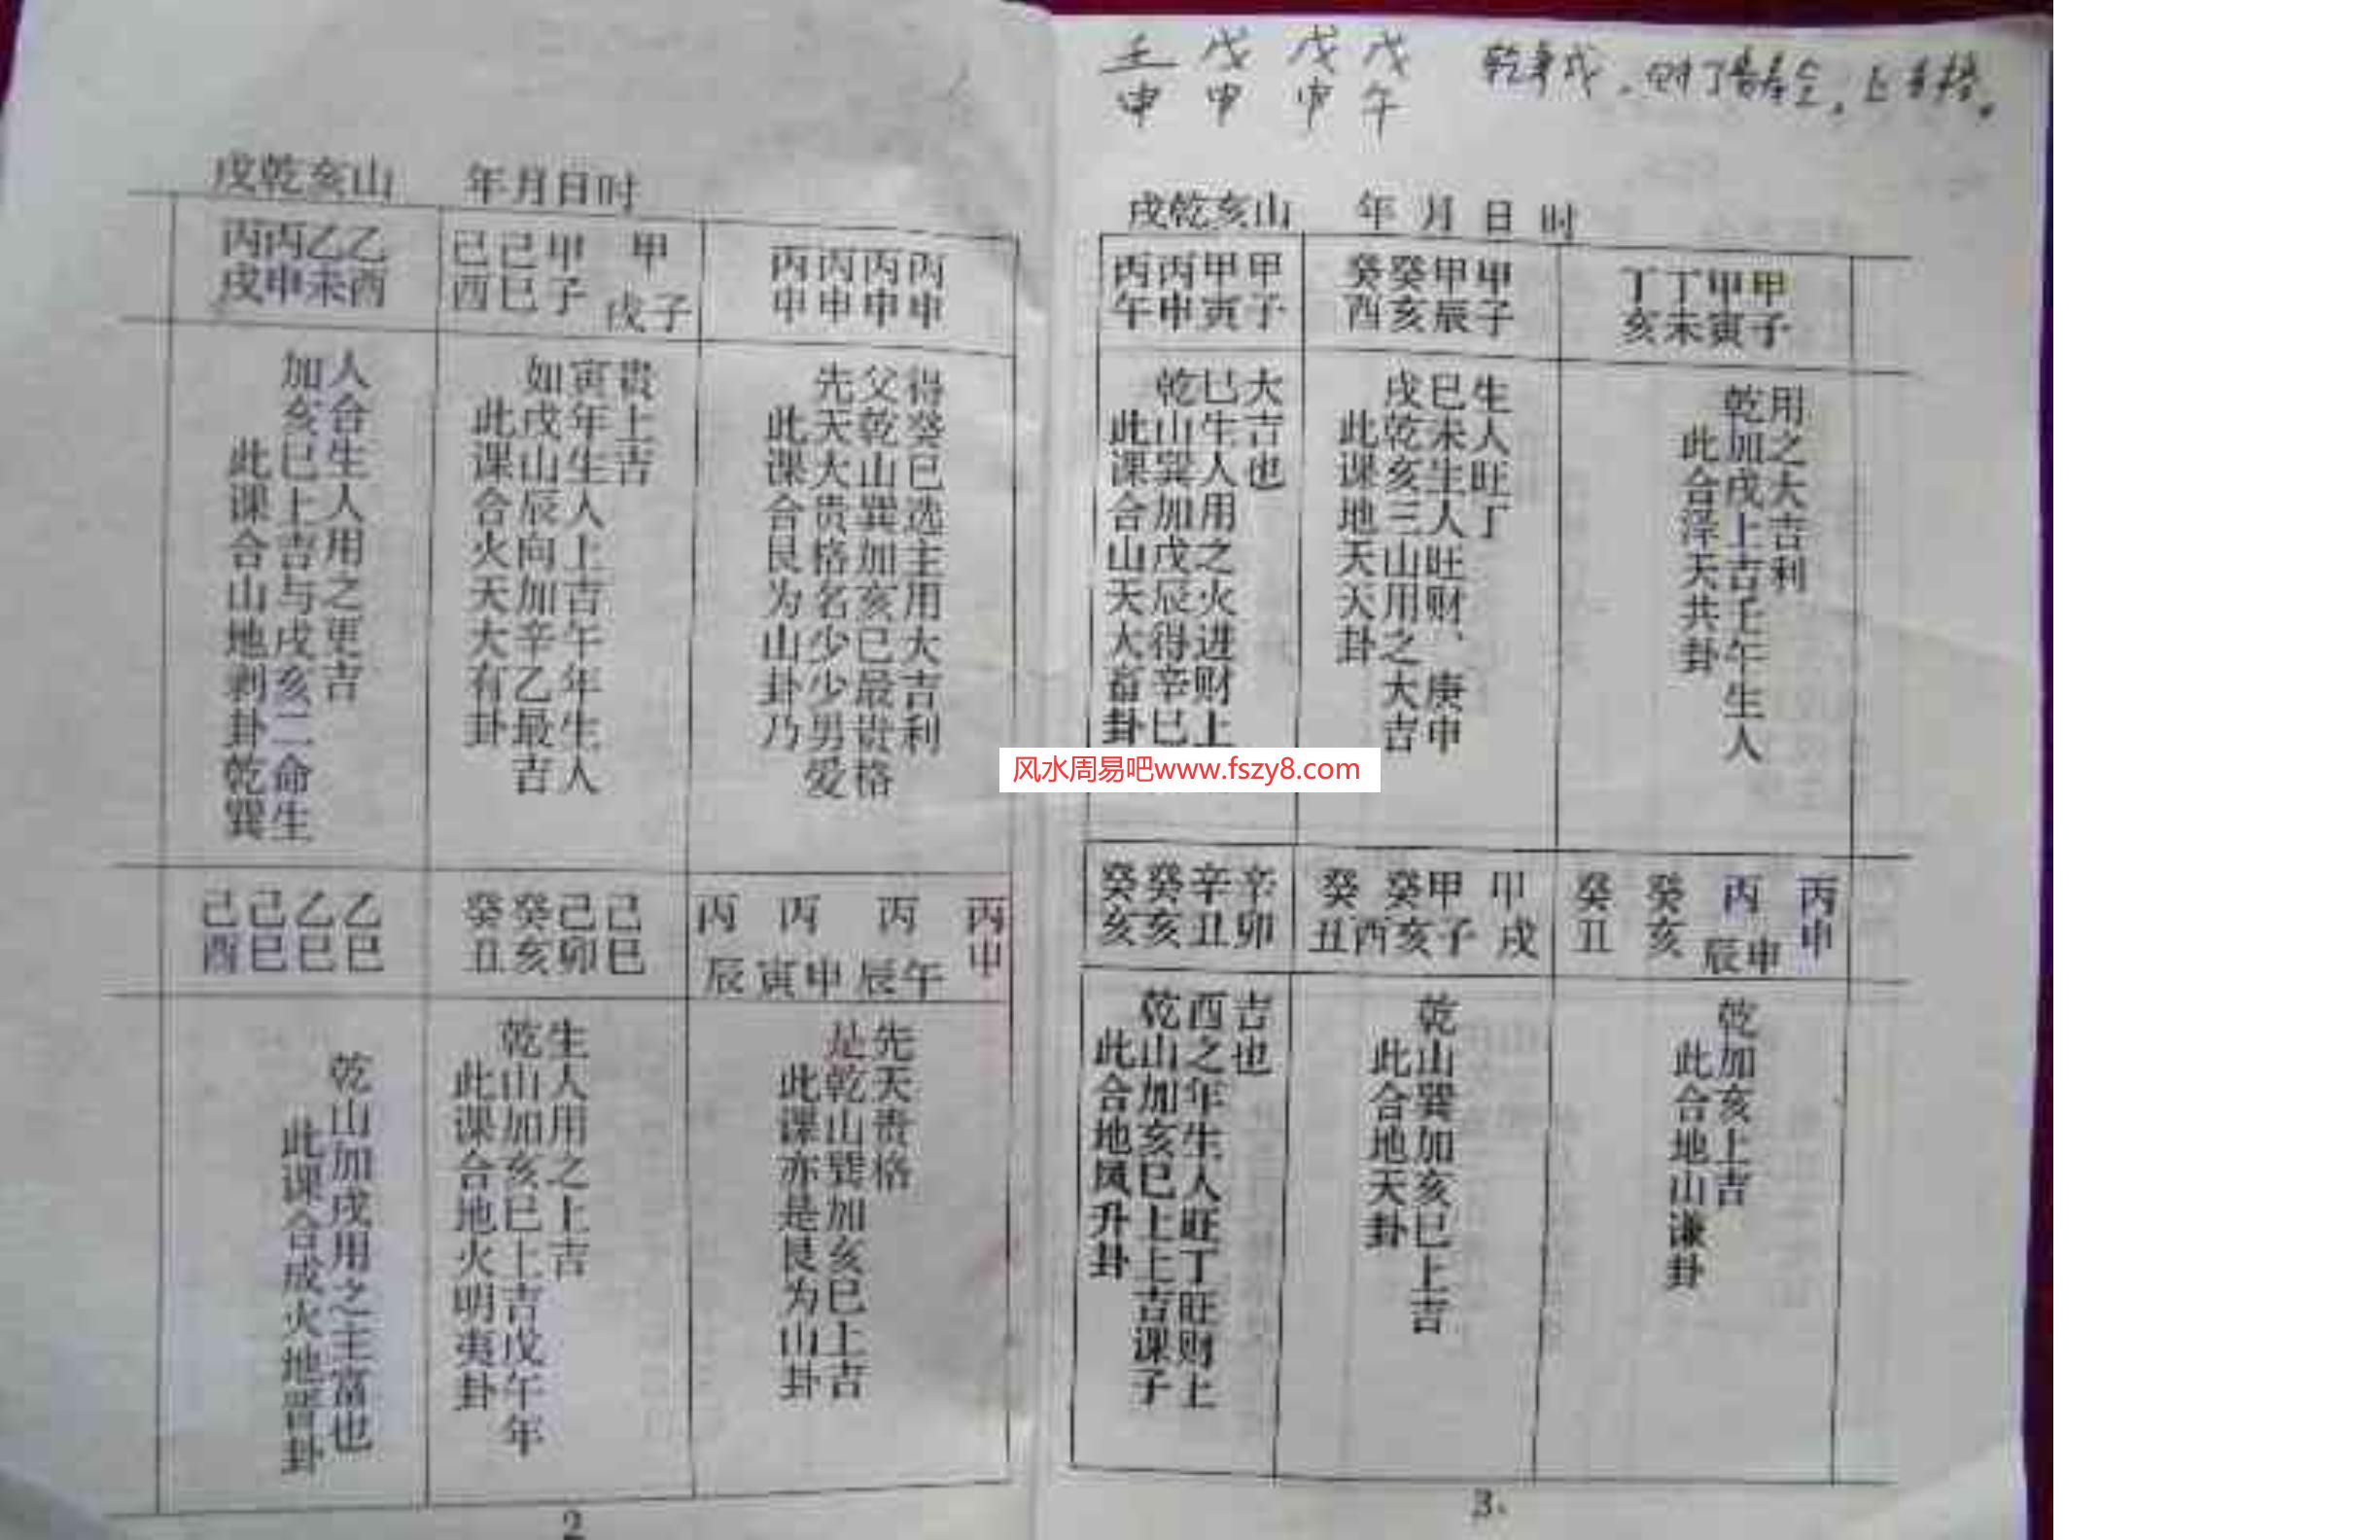 戌乾亥山 年月日时
丙丙乙乙
戌申未酉
此课合山地剥卦乾巽
加亥巳上吉与戌亥二命生
人合生人用之更吉
己己甲 甲
酉巳子 戌子
此课合火天大有卦
如戌山辰向加辛乙最吉
寅年生人上吉午年生人
贵上吉
丙丙丙丙
申申申申
此课合艮为山卦乃
先天大贵格名少少男爱
父乾山巽加亥巳最贵格
得癸巳选主用大吉利
己己乙乙
酉巳巳巳
此课合成火地晋卦
乾山加戌用之主富也
癸癸己己
丑亥卯巳
此课合地火明夷卦
乾山加亥巳上吉戊午年
生人用之上吉
丙 丙 丙 丙
辰寅申辰午 申
此课亦是艮为山卦
是乾山巽加亥巳上吉
先天贵格
2
壬 戊 戊 戊
申 申 申 午
戌乾亥山 年月日时
丙丙甲甲
午申寅子
此课合山天大畜卦
乾山巽加戊辰得辛巳
巳生人用之火进财上
大吉也
癸癸甲甲
酉亥辰子
此课地天天卦
戌乾亥三山用之大吉
巳未生人旺财、庚申
生人旺丁
丁丁甲甲
亥未寅子
此合泽天共卦
乾加戌上吉壬午生人
用之大吉利
风水周易吧www.fszy8.com
癸癸辛辛
亥亥丑卯
此合地风升卦
乾山加亥巳上上吉课子
酉之年生人旺丁旺财上
吉也
癸 癸甲 甲
丑酉亥子 戌
此合地天卦
乾山巽加亥巳上吉
癸 癸 丙 丙
丑 亥 辰申 申
此合地山谦卦
乾加亥上吉
3.